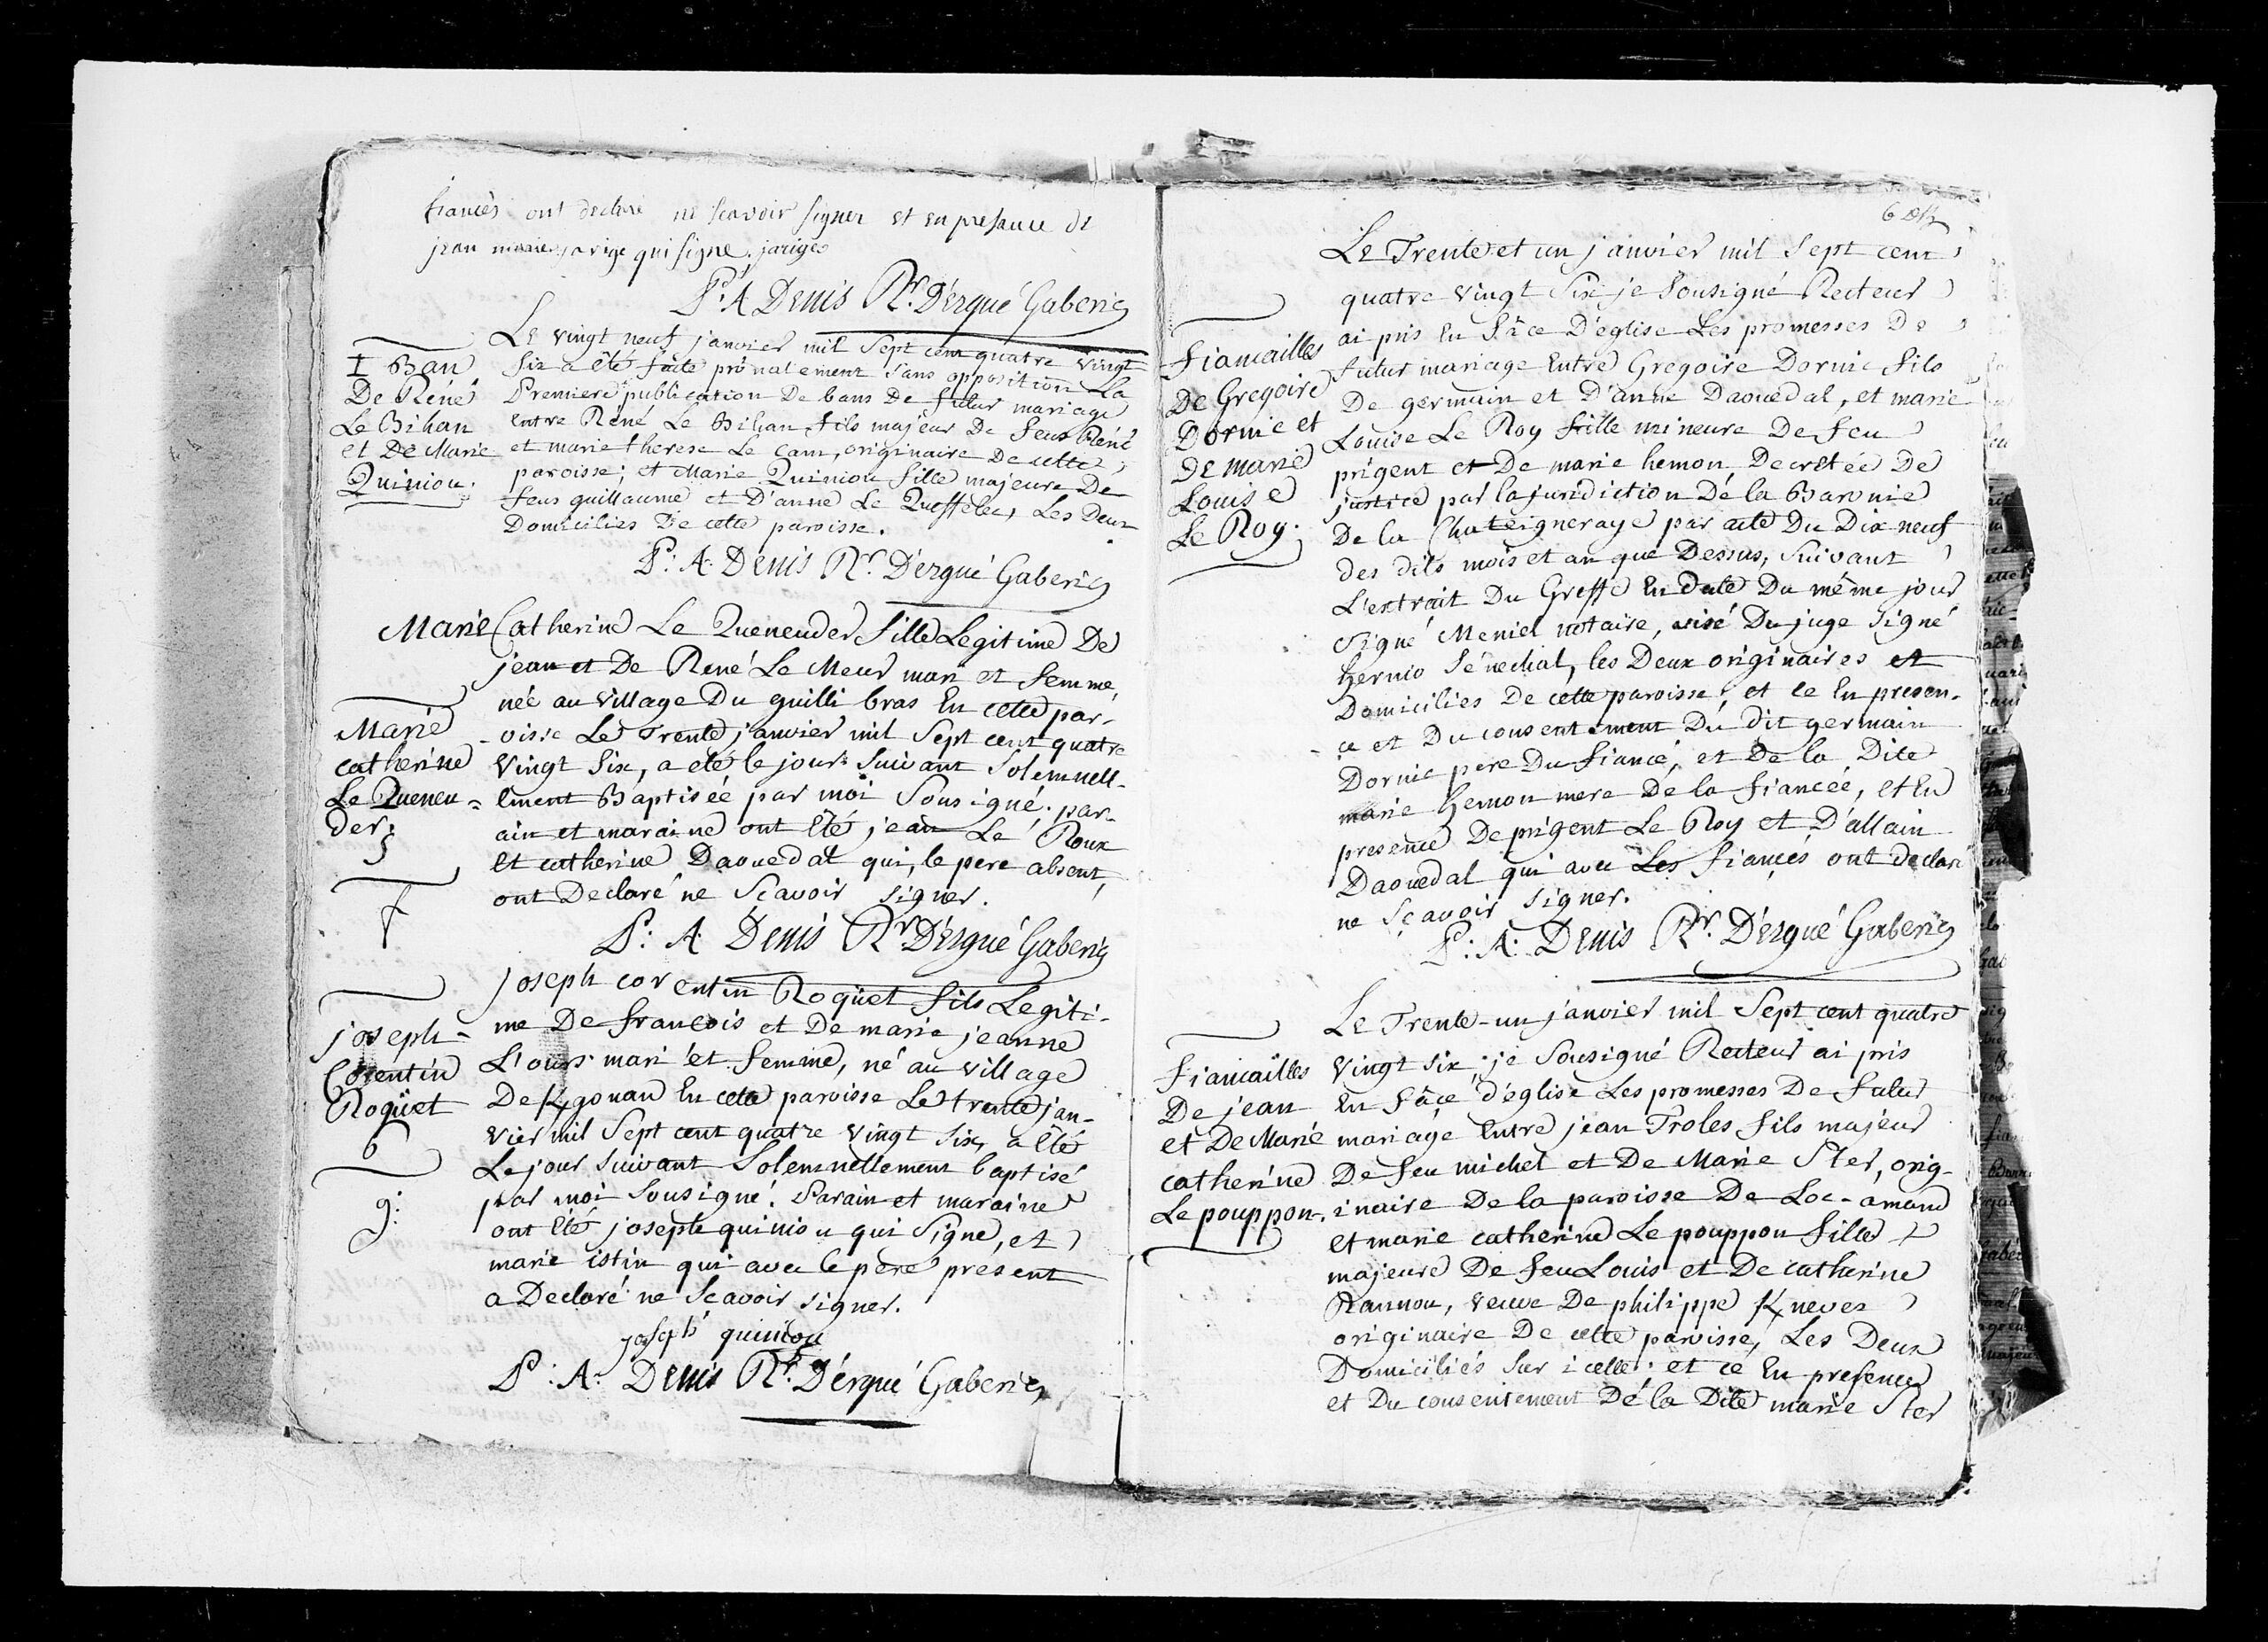 fiancés ont declaré ne scavoir signer et en presance de
jean marie jarige qui signe. jariges
P: A Denis Rr. D'ergué Gaberic
Le vingt neuf janvier mil sept cent quatre vingt
six a été faite prônalement sans opposition La
Premiere publication De bans De futur mariage
entre René Le Bihan fils majeur De feus René
et marie therese Le Cam, originaire De cette
paroisse; et Marie Quiniou fille majeure De
feus guillaume et D'anne Le Queffelec, Les Deux
Domiciliés De cette paroisse.
P: A: Denis Rr. D'ergué Gaberic
I Ban
De René
Le Bihan
et De Marie
Quiniou.
Marie Catherine Le Queneuder fille Legitime De
jean et De René Le Meur mari et femme,
née au village Du guilli bras en cette par-
-oisse Le Trente janvier mil sept cent quatre
vingt six, a eté le jour suivant solemnell-
ement Baptiséé par moi sousigné; par-
ain et maraine ont été jean Le Roux
et catherine Daouedal qui, le pere absent,
ont Declaré ne sçavoir signer.
P: A: Denis Rr D'ergué Gaberic
Marie
catherine
Le Queneu=
der;
5
f
joseph corentin Roqüet fils Legiti-
me De francois et De marie jeanne
L'ours mari et femme, né au village
De Kgonan en cette paroisse Le trente jan-
vier mil sept cent quatre vingt six, a été
Le jour suivant solemnellement baptisé
par moi sousigné. Parain et maraine
ont été joseph quiniou qui signe, et
marie istin qui avec le pere present
a Declaré ne sçavoir signer.
joseph quiniou
P: A: Denis Rr. D'ergué Gaberic
joseph
Corentin
Roqüet
6
g:
Le Trente et un janvier mil sept cent
quatre vingt six je sousigné Recteur
ai pris en fâce D'eglise Les promesses De
futur mariage entre Gregoire Dornic fils
De germain et D'anne Daouedal, et marie
Louise Le Roy fille mineure De feu
prigent et De marie hemon, Decretée De
justice par la juridiction De la Baronie
De la Chateigneraye par acte Du Dix neuf
des dits mois et an que Dessus, suivant
L'extrait Du Greffe en date Du même jour
signé Meniel notaire, visé Du juge signé
hernio sénéchal, les Deux originaires et
Domiciliés De cette paroisse, et ce en presen-
-ce et Du consentement Du dit germain
Dornic pere Du fiancé, et De la Dite
marie hemon mere De la fiancéé, et en
presence De prigent Le Roy et D'allain
Daouedal qui avec Les fiancés ont declaré
ne sçavoir signer.
P: A: Denis Rr. D'ergué Gaberic
fiancailles
De Gregoire
Dornic et
De marie
Louise
Le Roy.
Le Trente-un janvier mil sept cent quatre
vingt six; je sousigné Recteur ai pris
en fâce d'eglise Les promesses De futur
mariage entre jean Troles fils majeur
De feu michel et De Marie Ster, orig-
inaire De la paroisse De Loc-amand
et marie catherine Le pouppon fille
majeure De feu Louis et De catherine
Rannou, veuve De philippe Knevez
originaire De cette paroisse, Les Deux
Domiciliés sur icelle; et ce en presence
et Du consentement De la Dite marie Ster
fiancailles
De jean
et De Marie
catherine
Le pouppon.